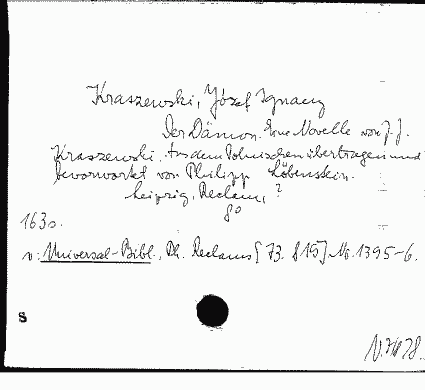 Kraszewski, Józef Ignacy
Der Dämon. Eine Novelle von J. J.
Kraszewski. Aus dem Polnischen übertragen und
bevorwortet von Philipp Löbenstein.
Leipzig, Reclam, ?
8°
1630.
v: Universal-Bibl., Ph. Reclams [73. 815] No. 1395-6.
S